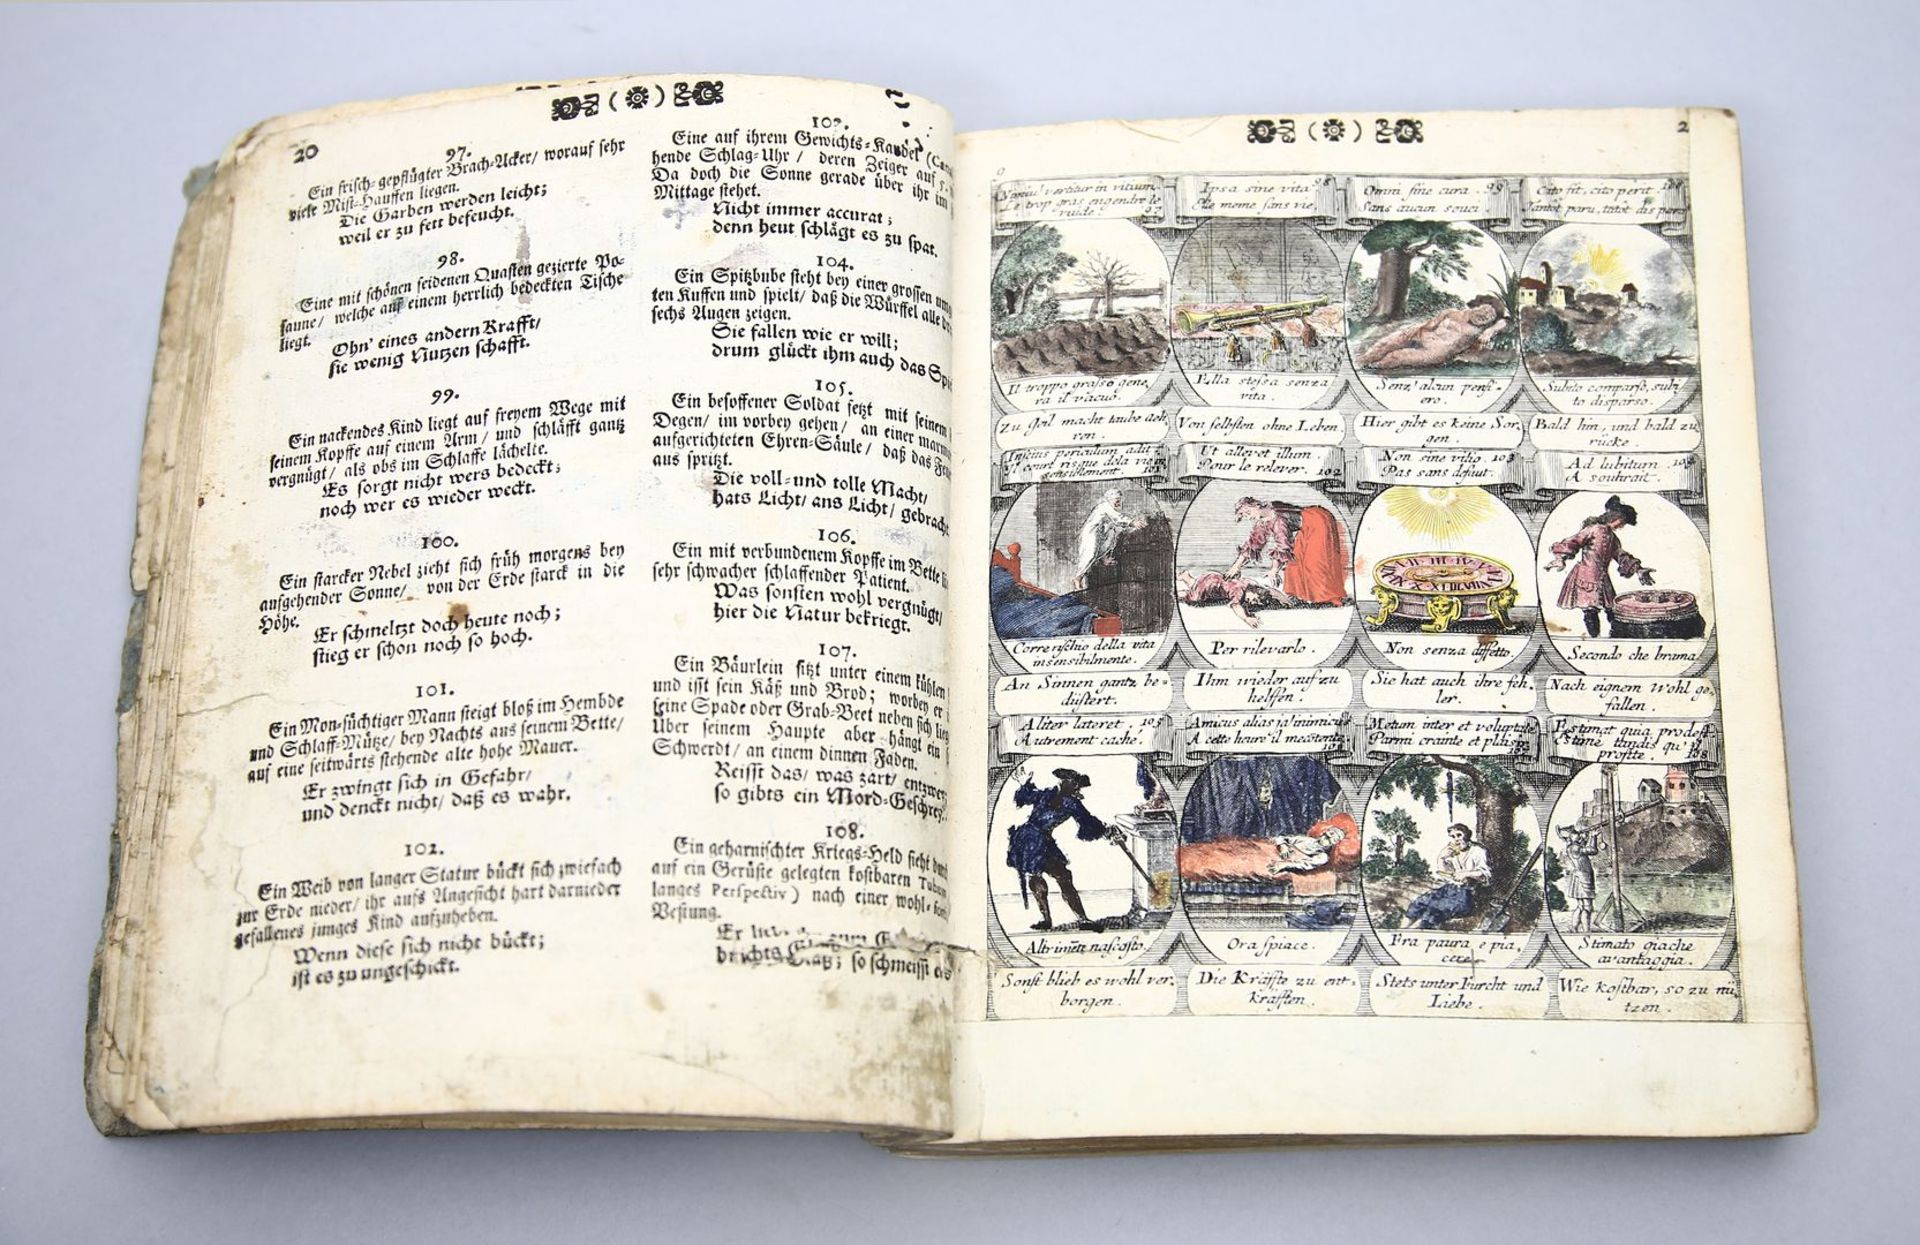 20
97.
Ein frisch-gepflügter Brach-Acker/ worauf sehr
viele Mist-Hauffen liegen.
Die Garben werden leicht;
weil er zu fett befeucht.
98.
Eine mit schönen seidenen Quasten gezierte Po-
saune/ welche auf einem herrlich bedeckten Tische
liegt.
Ohn' eines andern Krafft/
sie wenig Nutzen schafft.
99.
Ein nackendes Kind liegt auf freyem Wege mit
seinem Kopffe auf einem Arm/ und schläfft gantz
vergnügt/ als obs im Schlaffe lächelte.
Es sorgt nicht wers bedeckt;
noch wer es wieder weckt.
100.
Ein starcker Nebel zieht sich früh morgens bey
aufgehender Sonne/ von der Erde starck in die
Höhe.
Er schmeltzt doch heute noch;
stieg er schon noch so hoch.
101.
Ein Mon-süchtiger Mann steigt bloß im Hembde
und Schlaff-Mütze/ bey Nachts aus seinem Bette/
auf eine seitwärts stehende alte hohe Mauer.
Er zwingt sich in Gefahr/
und denckt nicht/ daß es wahr.
102.
Ein Weib von langer Statur bückt sich zwiefach
zur Erde nieder/ ihr aufs Angesicht hart darnieder
gefallenes junges Kind aufzuheben.
Wenn diese sich nicht bückt;
ist es zu ungeschickt.
103.
Eine auf ihrem Gewichts-
hende Schlag-Uhr/ deren Zeiger auf 5.
Da doch die Sonne gerade über ihr im
Mittage stehet.
Nicht immer accurat;
denn heut schlägt es zu spat.
104.
Ein Spitzbube steht bey einer grossen
ten Kuffen und spielt/ daß die Würffel alle
sechs Augen zeigen.
Sie fallen wie er will;
drum glückt ihm auch das
105.
Ein besoffener Soldat setzt mit seinem
Degen/ im vorbey gehen/ an einer
aufgerichteten Ehren-Säule/ daß das
aus spritzt.
Die voll-und tolle Macht/
hats Licht/ ans Licht/ gebracht
106.
Ein mit verbundenem Kopffe im Bette
sehr schwacher schlaffender Patient.
Was sonsten wohl vergnügt/
hier die Natur bekriegt.
107.
Ein Bäurlein sitzt unter einem kühlen
und isst sein Käß und Brod; worbey er
seine Spade oder Grab-Beet neben sich
Über seinem Haupte aber hängt ein
Schwerdt/ an einem dinnen Faden.
Reisst das/ was zart/
so gibts ein Mord-Geschrey.
108.
Ein geharnischter Kriegs-Held sieht
auf ein Gerüste gelegten kostbaren
langes Perspectiv) nach einer wohl-
Vestung.
Er
so schmeisst
2
vertitur in vitium.
Le trop gras engendre le
97
Ipsa sine vita 98
Elle meme sans vie.
Omni sine cura. 99
Sans aucun souci.
Cito fit, cito perit 100
Tantôt paru, tátôt
Il troppo grasso gene,
ra il vacuo.
Ella stessa senza
vita.
Senz' alcun pensi-
ero.
Subito comparso, subi
to disparso.
Zu Geil macht taube aeh-
ren.
Von selbsten ohne Leben.
Hier gibt es keine Sor,
gen.
Bald hin, und bald zu
rücke.
Inscius periculum adit.
Il court risque de la vie in,
sensiblement. 101
Ut allevet illum.
Pour le relever. 102
Non sine vitio. 103
Pas sans defaut.
Ad lubitum. 104
A souhrait.
Corre rischio della vita
insensibilmente.
Per rilevarlo.
Non senza diffetto.
Secondo che brama.
An Sinnen gantz be-
düstert.
Ihm wieder auf zu
helffen.
Sie hat auch ihre feh-
ler.
Nach eignem Wohl ge,
fallen.
Aliter lateret. 105
Autrement caché.
Amicus alias
A cette heure il
106
Metum inter et voluptatē
Parmi crainte et plaisir
107
Estimat quia prodest
Estimé tandis qu'il
profite. 108
nascosto.
Ora spiace.
Fra paura e pia,
cere
Stimato giache
avantaggia.
Sonst blieb es wohl ver
borgen.
Die Kräffte zu ent-
krafften.
Stets unter Furcht und
Liebe.
Wie kostbar, so zu nü
tzen.